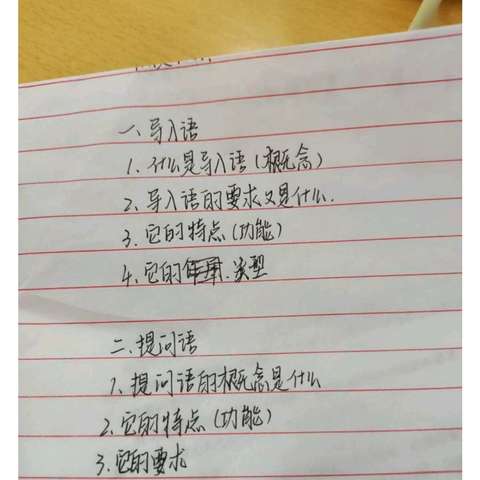 一、导入语
1、什么是导入语(概念)
2、导入语的要求又是什么.
3、它的特点(功能)
4、它的作用.类型
二、提问语
1、提问语的概念是什么
2、它的特点(功能)
3、它的要求